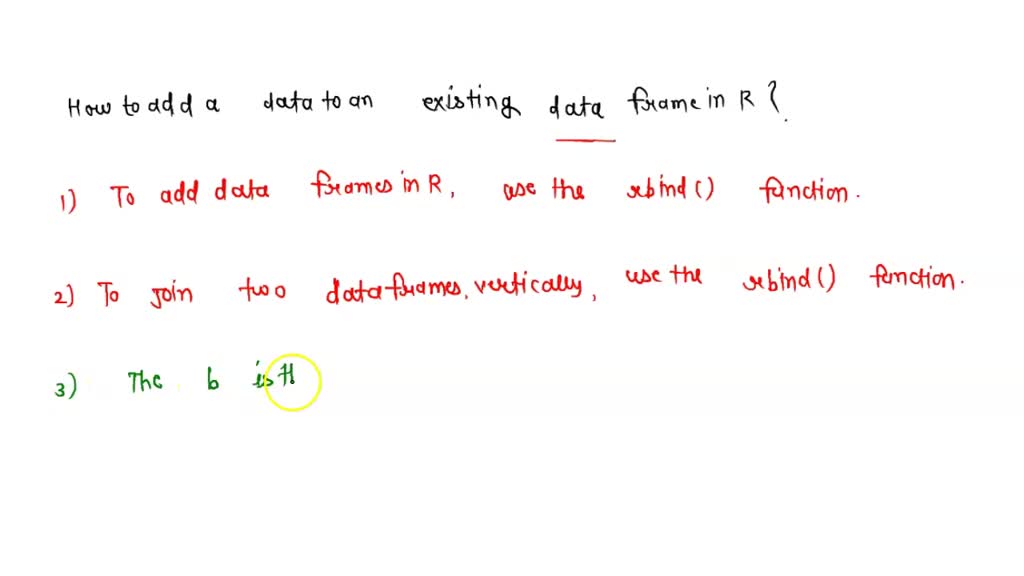 How to add a data to an existing data frame in R ?
1) To add data frames in R, use the rbind() function.
2) To join two dataframes, vertically, use the rbind() function.
3) The b is th